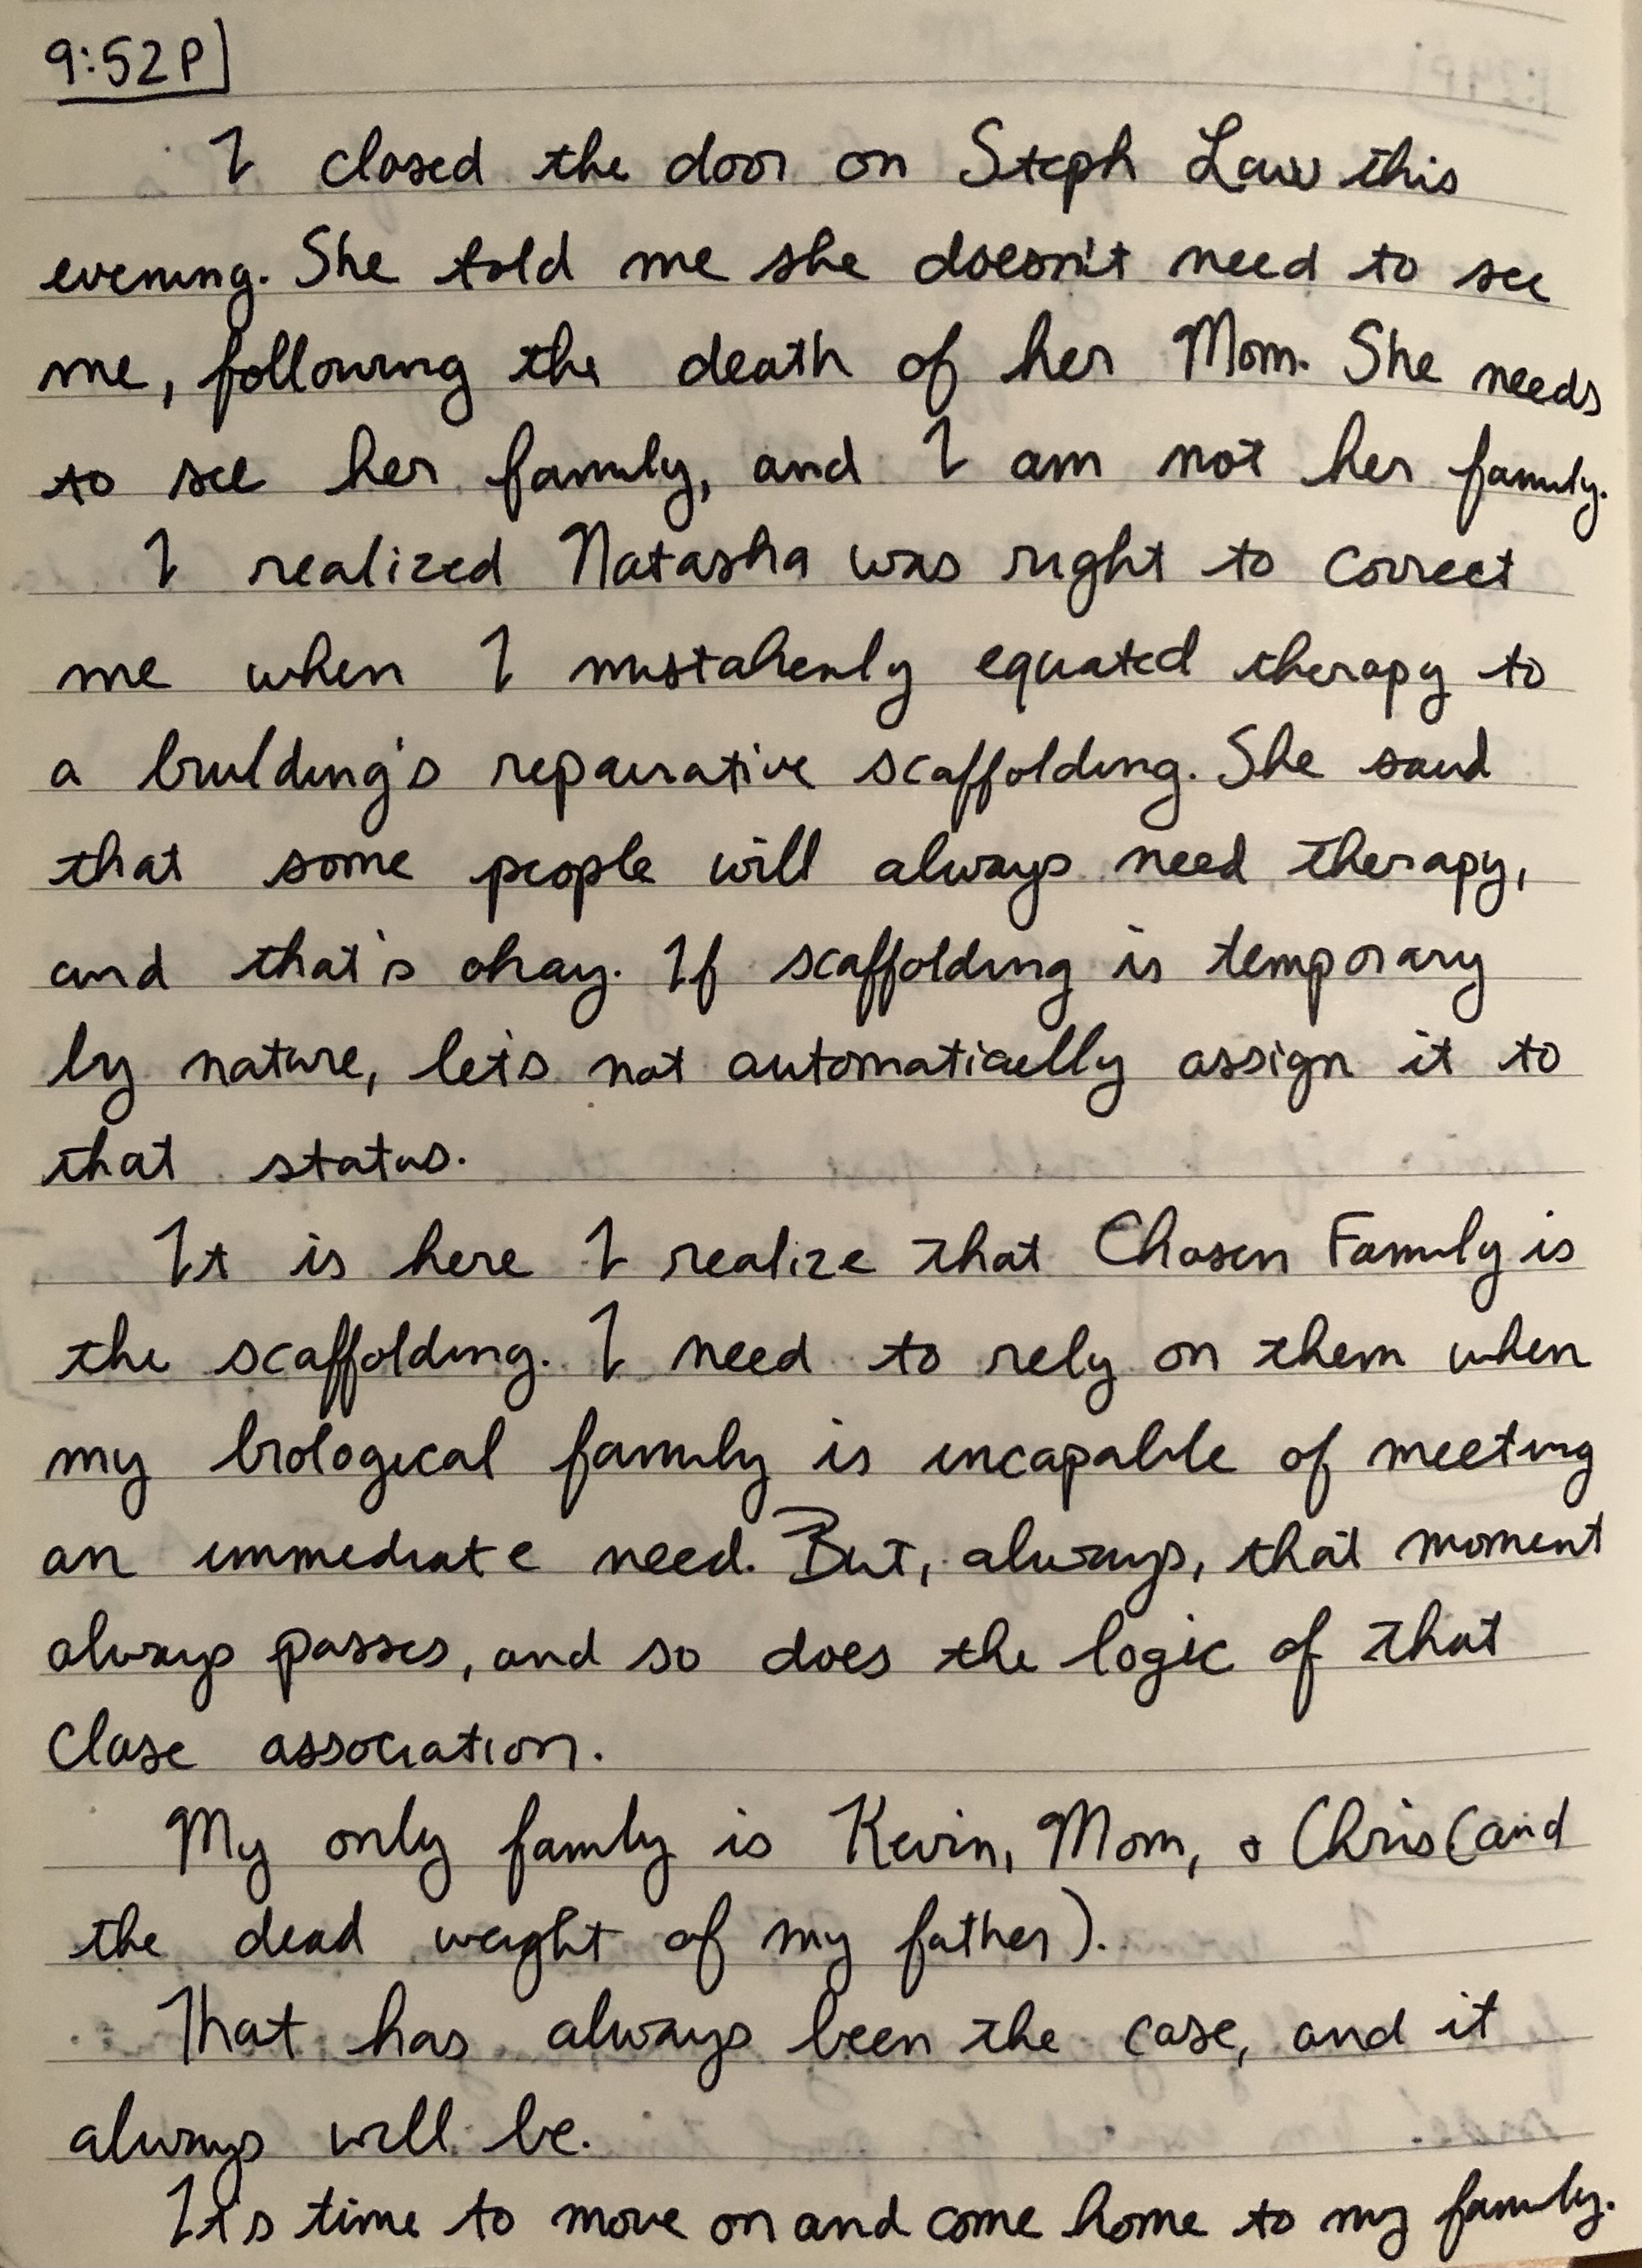 9:52P
I closed the door on Steph Law this
evening. She told me she doesn't need to see
me, following the death of her Mom. She needs
to see her family, and I am not her family.
I realized Natasha was right to correct
me when I mistakenly equated therapy to
a building's repairative scaffolding. She said
that some people will always need therapy,
and that's okay. If scaffolding is temporary
by nature, let's not automatically assign it to
that status.
It is here I realize that Chosen Family is
the scaffolding. I need to rely on them when
my biological family is incapable of meeting
an immediate need. But, always, that moment
always passes, and so does the logic of that
close association.
My only family is Kevin, Mom, + Chris (and
the dead weight of my father).
That has always been the case, and it
always will be.
It's time to move on and come home to my family.